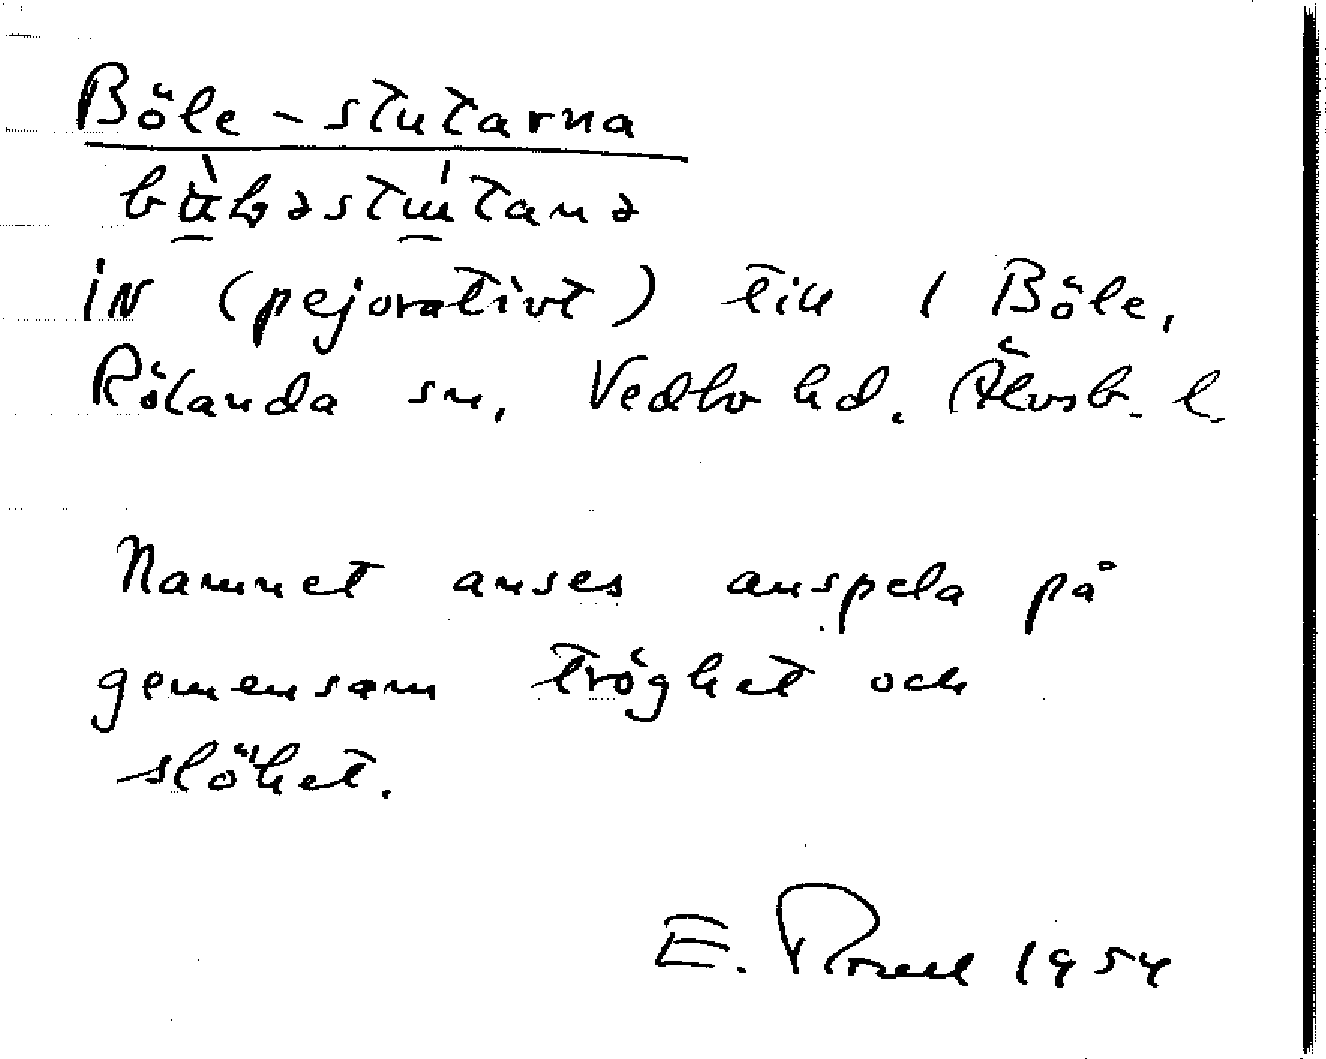 Böle-stutarna
IN (pejorativt) till 1 Böle,
Rölanda sn, Vedbo hd. Älvsb. l.
Namnet anses anspela på
gemensam tröghet och
slöhet.
E. 1954